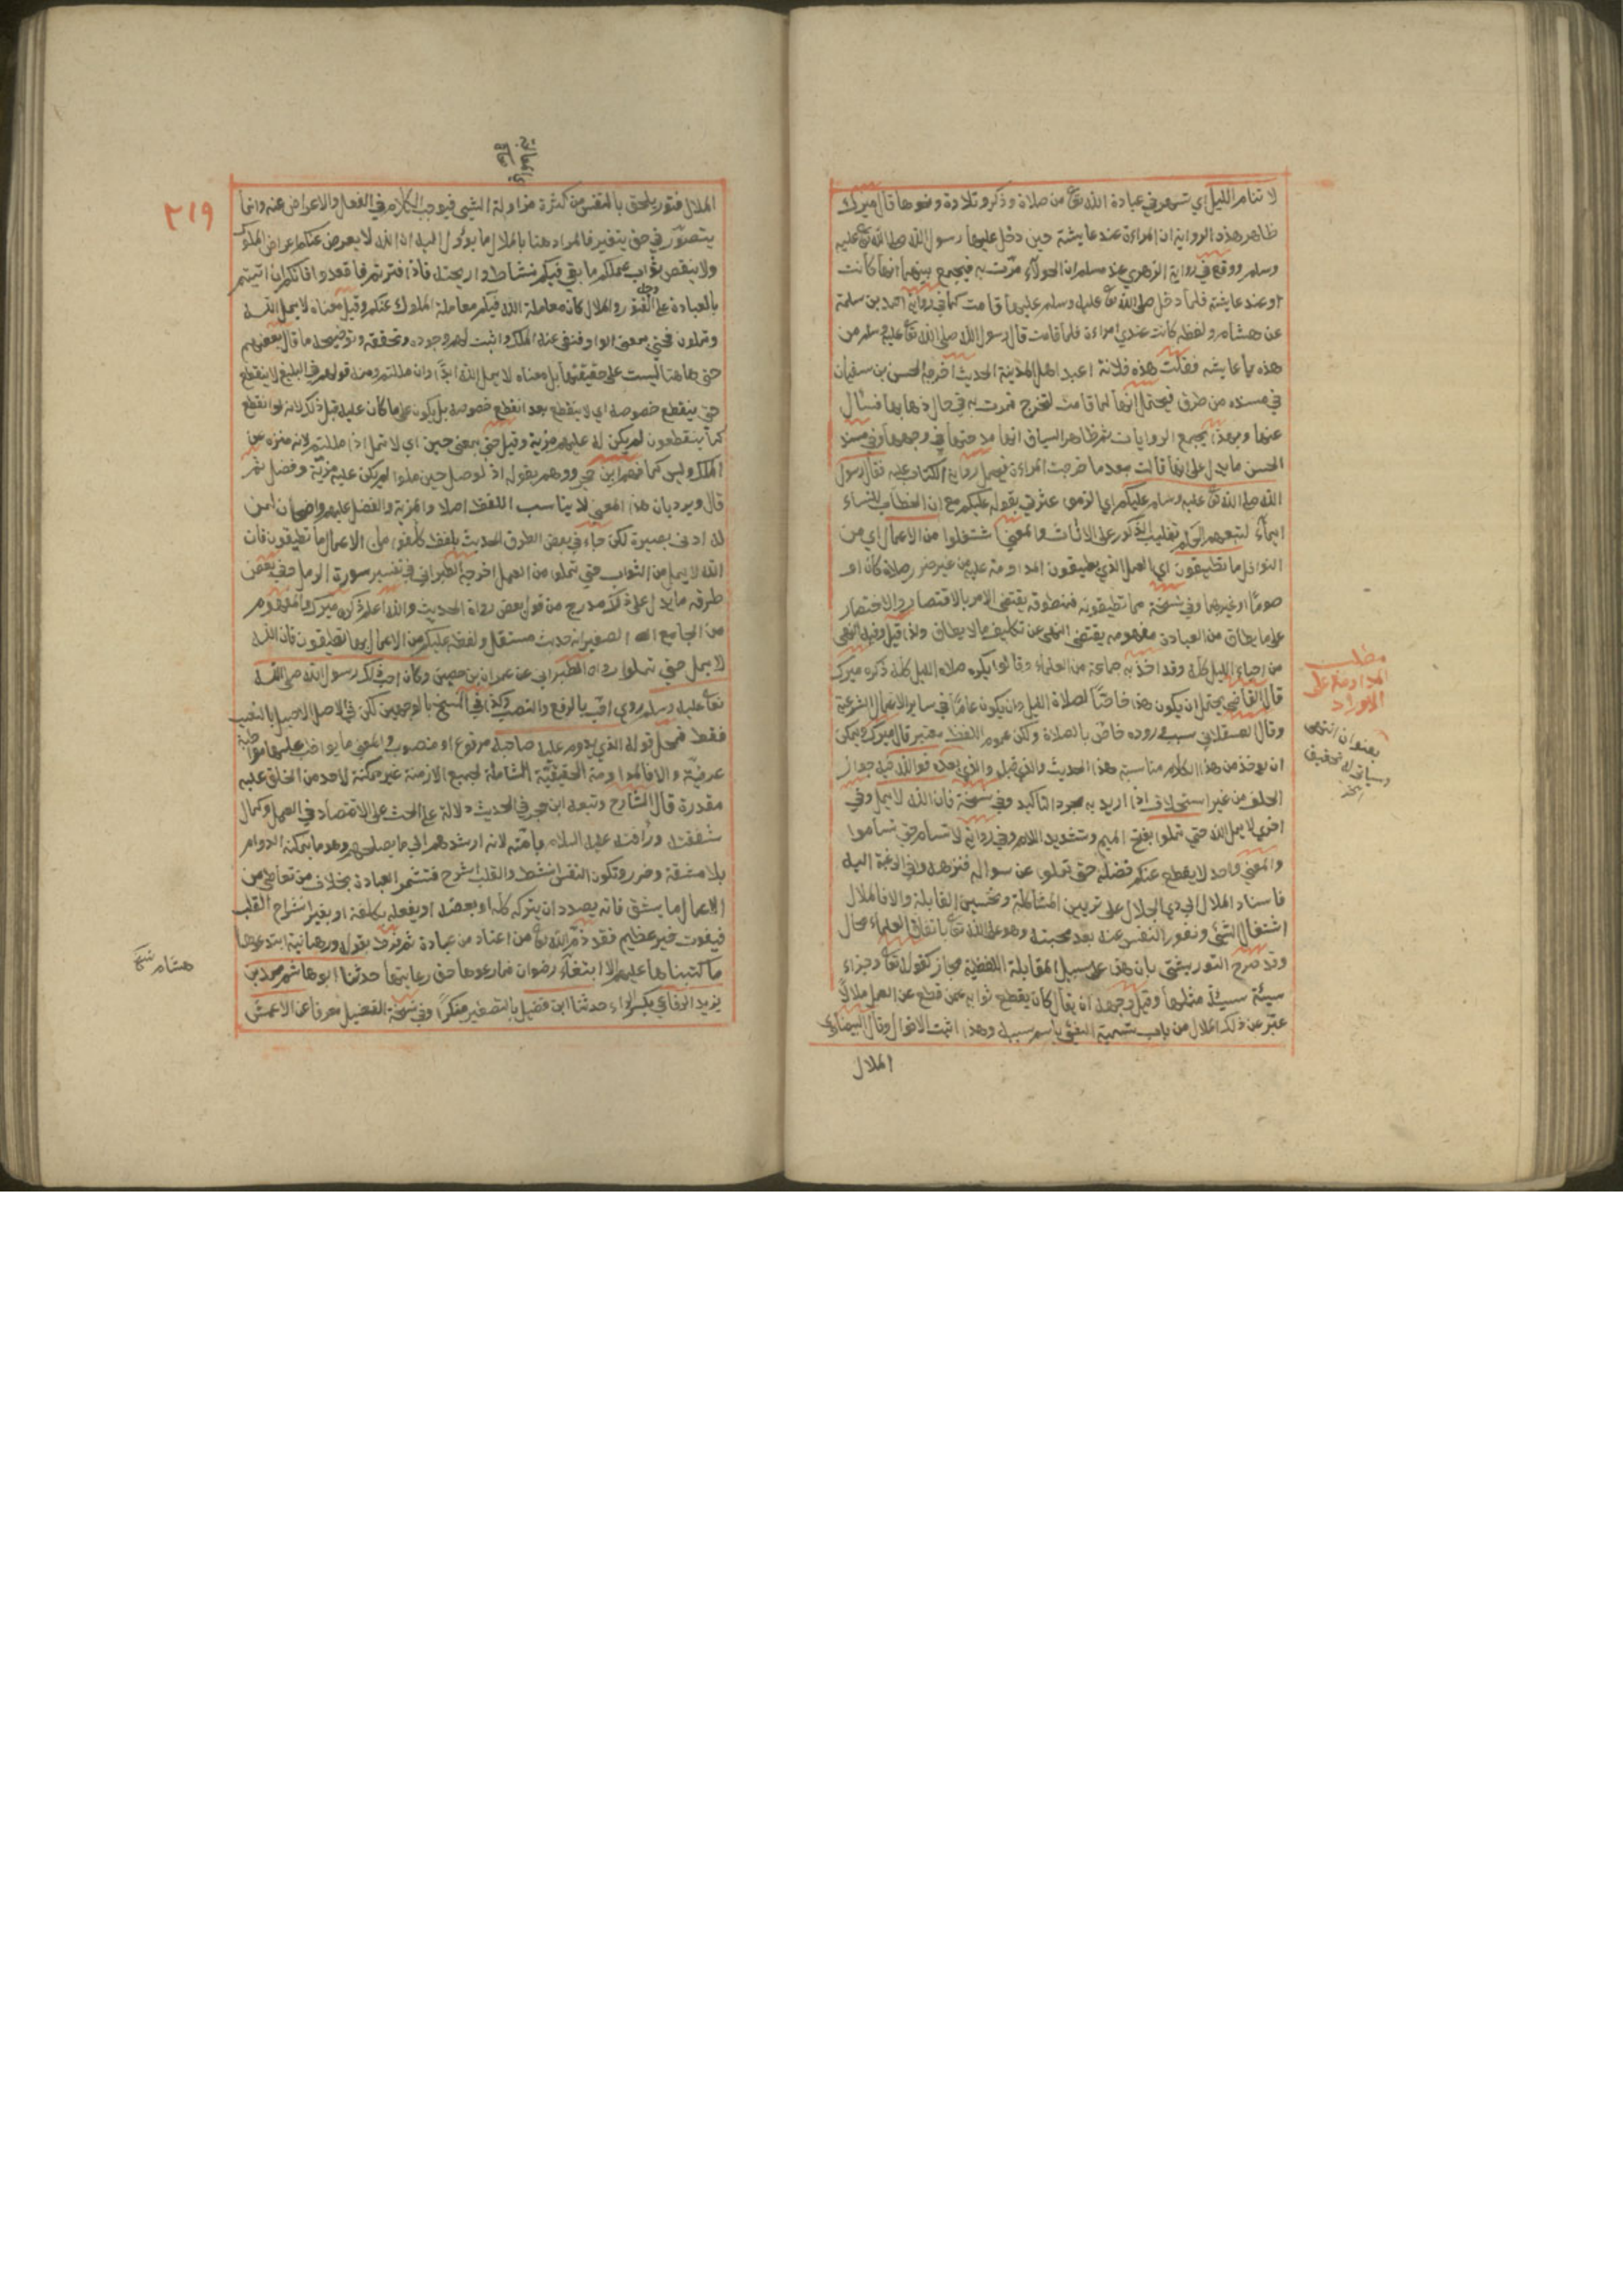 لا تنام الليل اي تسهر في عبادة الله تع من صلاة وذكر وتلاوة ونحوها قال ميرك
ظاهر هذه الرواية ان المراءة عند عايشة حين دخل عليها رسول الله صلى الله تع عليه
وسلم ووقع في رواية الزهري عند مسلم ان الحولاء مرّت به فيجمع بينهما انها كانت
او عند عايشة فلما دخل صلى الله تع عليه وسلم عليها قامت كما في رواية احمد بن سلمة
عن هشام ولفظه كانت عندي امراءة فلما قامت قال رسول الله صلى الله تع عليه وسلم من
هذه يا عايشه فقلت هذه فلانة اعبد اهل المدينة الحديث اخرجه الحسن بن سفيان
في مسنده من طرق فيحتمل انها لما قامت لتخرج فمرت به في حال ذهابها فسئال
عنها وبهذا يجمع الروايات ثم ظاهر السياق انها مدحتها في وجهها وفي مسند
الحسن ما يدل على انها قالت بعد ما خرجت المراءة فيحمل رواية الكتاب عليه فقال رسول
الله صلى الله تع عليه وسلم عليكم اي الزموا عبّر في بقوله عليكم مع ان الخطاب للنساء
ايماء لتعميم الحكم بتغليب الذكور على الاناث والمعنى اشتغلوا من الاعمال اي من
النوافل ما تطيقون اي العمل الذي يطيقون المداومة عليه من غير ضرر صلاة كان او
صوما او غيرهما وفي نسخة مما تطيقونه فمنطوقه يقتضي الامر بالاقتصار والاختصار
على ما يطاق من العبادة مفهومه يقتضي النهي عن تكليف ما لا يطاق ولذا قيل وفيه النهي
من احياء الليل كله وقد اخذ به جماعة من العلماء وقالوا يكره صلاه الليل كله ذكره ميرك
قال القاضي يحتمل ان يكون هذا خاصّا لصلاة الليل وان يكون عامّا في ساير الاعمال الشرعية
وقال العسقلاني سبب وروده خاصّ بالصلاة ولكن عموم اللفظ معتبر قال ميرك ويمكن
ان يوخذ من هذا الكلام مناسبة هذا الحديث والذي قبل والذي بعده فوالله فيه جواز
الحلف من غير استحلاف اذا اريد به مجرد التاكيد وفي نسخة فان الله لا يمل وفي
اخرى لا يمل الله حتى تملوا بفتح الميم وتشديد اللام وفي رواية لا تسام حتى تساموا
والمعنى واحد لا يقطع عنكم فضله حتى تملوا عن سواله فتزهدوا في الرغبة اليه
فاسناد الملال الى ذي الجلال على تزيين المشاكلة وتحسين المقابلة والا فالملال
اشتغال الشئ ونفور النفس عنه بعد محبته وهو على الله تع باتفاق العلماء محال
وقد صرح التوربشتي بان هذا على سبيل المقابلة اللفظية مجاز كقوله تع وجزاء
سيئة سيئة مثلها وقيل وجهه انه تعالى كان يقطع ثوابه عمن قطع عن العمل ملالا
عبّر عن ذلك الملال من باب تسمية الشئ باسم سببه وهذا اثبت الاقوال وقال البيضاوي
الملال
مطلب
المداومة على
الاوراد
بعنوان انتهى
وسياتي له تحقيق
اخر
٢١٩
الملال فتور يلحق بالنفس من كثرة مزاولة الشيئ فيوجب الكلام في الفعال والاعراض عنه وانما
يتصوّر في حق يتغير فالمراد هنا بالملال ما يؤول اليه ان الله لا يعرض عنكم اعراض الملوك
ولا ينقص ثواب عملكم ما بقي فيكم نشاط واريحية فاذا فترتم فاقعدوا فانكم ان اتيتم
بالعبادة على الفتور والملال كان معاملة الله فيكم معاملة الملول عنكم وقيل معناه لا يمل الله
وتملون فحتى بمعنى الواو فنفى عنه الملل واثبت لهم وجوده وتحققه وتوضيحه ما قال بعضهم
حتى هاهنا ليست على حقيقتها بل معناه لا يمل الله ابدا وان مللتم ومنه قولهم في البليغ لا ينقطع
حتى ينقطع خصومه اي لا ينقطع بعد انقطع خصومه بل يكون على ما كان عليه قبل ذلك لانه لو انقطع
كما ينقطعون لم يكن له عليهم مزية وقيل حتى بمعنى حين اي لا تمل اذا مللتم لانه منزه عن
الملل وليس كما فهم ابن حجر ووهم بقوله اذ لو صل حين ملوا لم يكن عليه مزيّة وفضل ثم
قال ويرد بان هذا المعنى لا يناسب اللفظ اصلا والمزية والفضل عليهم واضحان لمن
له ادنى بصيرة لكن جاء في بعض الطرق الحديث بلفظ كلفوا من الاعمال ما تطيقون فان
الله لا يمل من الثواب حتى تملوا من العمل اخرجه الطبراني في تفسير سورة المزمل وفي بعض
طرقه ما يدل على ذلك مدرج من قول بعض رواة الحديث والله اعلم ذكره ميرك والمفهوم
من الجامع الصغير انه حديث مستقل ولفظه عليكم من الاعمال بما تطيقون فان الله
لا يمل حتى تملوا رواه الطبراني عن عمران بن حصين وكان احب ذلك رسول الله صلى الله
تع عليه وسلم روي احب بالرفع والنصب وكذا في النسخ بالوجهين لكن في الاصل الاصيل بالنصب
فقط فمحل قوله الذي يدوم عليه صاحبه مرفوع او منصوب والمعنى ما يواظب عليه مواظبة
عرفيّة والا فالمداومة الحقيقيّة الشاملة لجميع الازمنة غير ممكنة لاحد من الخلق عليه
مقدرة قال الشارح وتبعه ابن حجر في الحديث دلالة على الحث على الاقتصاد في العمل وكمال
شفقته ورأفته عليه السلام بامّته لانه ارشدهم الى ما يصلحهم وهو ما يمكنه الدوام
بلا مشقة وضرر وتكون النفس انشط والقلب اشرح فتستمر العبادة بخلاف من تعاطى من
الاعمال ما يشق فانه بصدد ان يتركه كله او بعضه او يفعله بكلفة او بغير انشراح القلب
فيفوت خير عظيم فقد ذمّ الله تع من اعتاد من عبادة ثم فرط بقوله ورهبانية ابتدعوها
ما كتبناها عليهم الا ابتغاء رضوان فما رعوها حق رعايتها حدثنا ابو هاشم محمد بن
يزيد الرفاعي بكسر الراء حدثنا ابن فضيل بالتصغير منكرا وفي نسخة الفضيل معرفا عن الاعمش
هشام نسخة